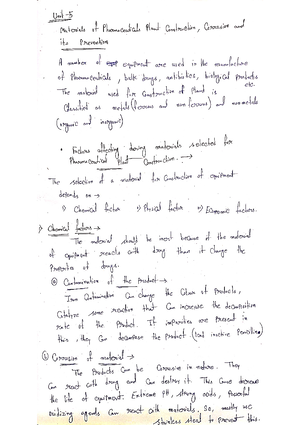 Unit -5
Materials of Pharmaceuticals Plant Construction, Corrosion and
its Prevention
A number of equipment are used in the manufacture
of Pharmaceuticals, bulk drugs, antibiotics, biological products
etc.
The material used for Construction of Plant is
Classified as metals (ferrous and non ferrous) and nonmetals
(organic and inorganic)
• Factors affecting during materials selected for
Pharmaceutical Plant Construction. →
The selection of a material for Construction of equipment
depends on →
1) Chemical factor 2) Physical factor 3) Economic factors.
1) Chemical factors →
The material should be inert because if the material
of equipment reacts with drug than it change the
Properties of drugs.
(a) Contamination of the Product →
Iron Contamination can change the Colour of Products,
Catalyze some reaction that Can increase the decomposition
rate of the Product. If impurities are present in
this, they Can decompose the Product. (Lead inactive Penicillin)
(b) Corrosion of material →
The Products Can be Corrosive in nature. They
Can react with drug and Can destroy it. This Can decrease
the life of equipment. Extreme PH, strong acids, Powerful
oxidizing agents Can react with materials. So, mostly
Stainless steel to prevent this.